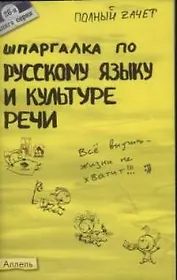 ПОЛНЫЙ ZАЧЕТ
ШПАРГАЛКА ПО
РУССКОМУ ЯЗЫКУ
И КУЛЬТУРЕ
РЕЧИ
Всё выучить -
жизни не
хватит!!!
Аллель